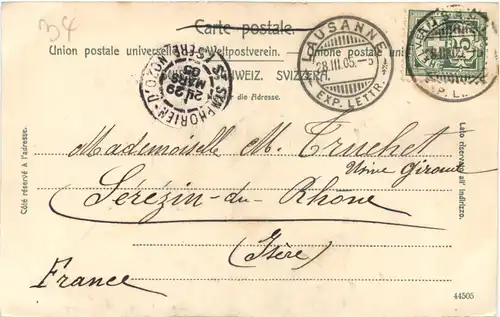 34
Carte postale.
Union postale universelle. Weltpostverein. Unione postale universale.
SCHWEIZ. SVIZZERA.
für die Adresse.
LAUSANNE
28.III.05.
EXP. LETTR.
ST SYMPHORIEN-D'OZON
ISERE
29
MARS
05
Côté réservé à l'adresse.
Lato riservato all' indirizzo.
Mademoiselle M. Truchet
Usine Giraud
Sérézin-du-Rhône
(Isère)
France
44505